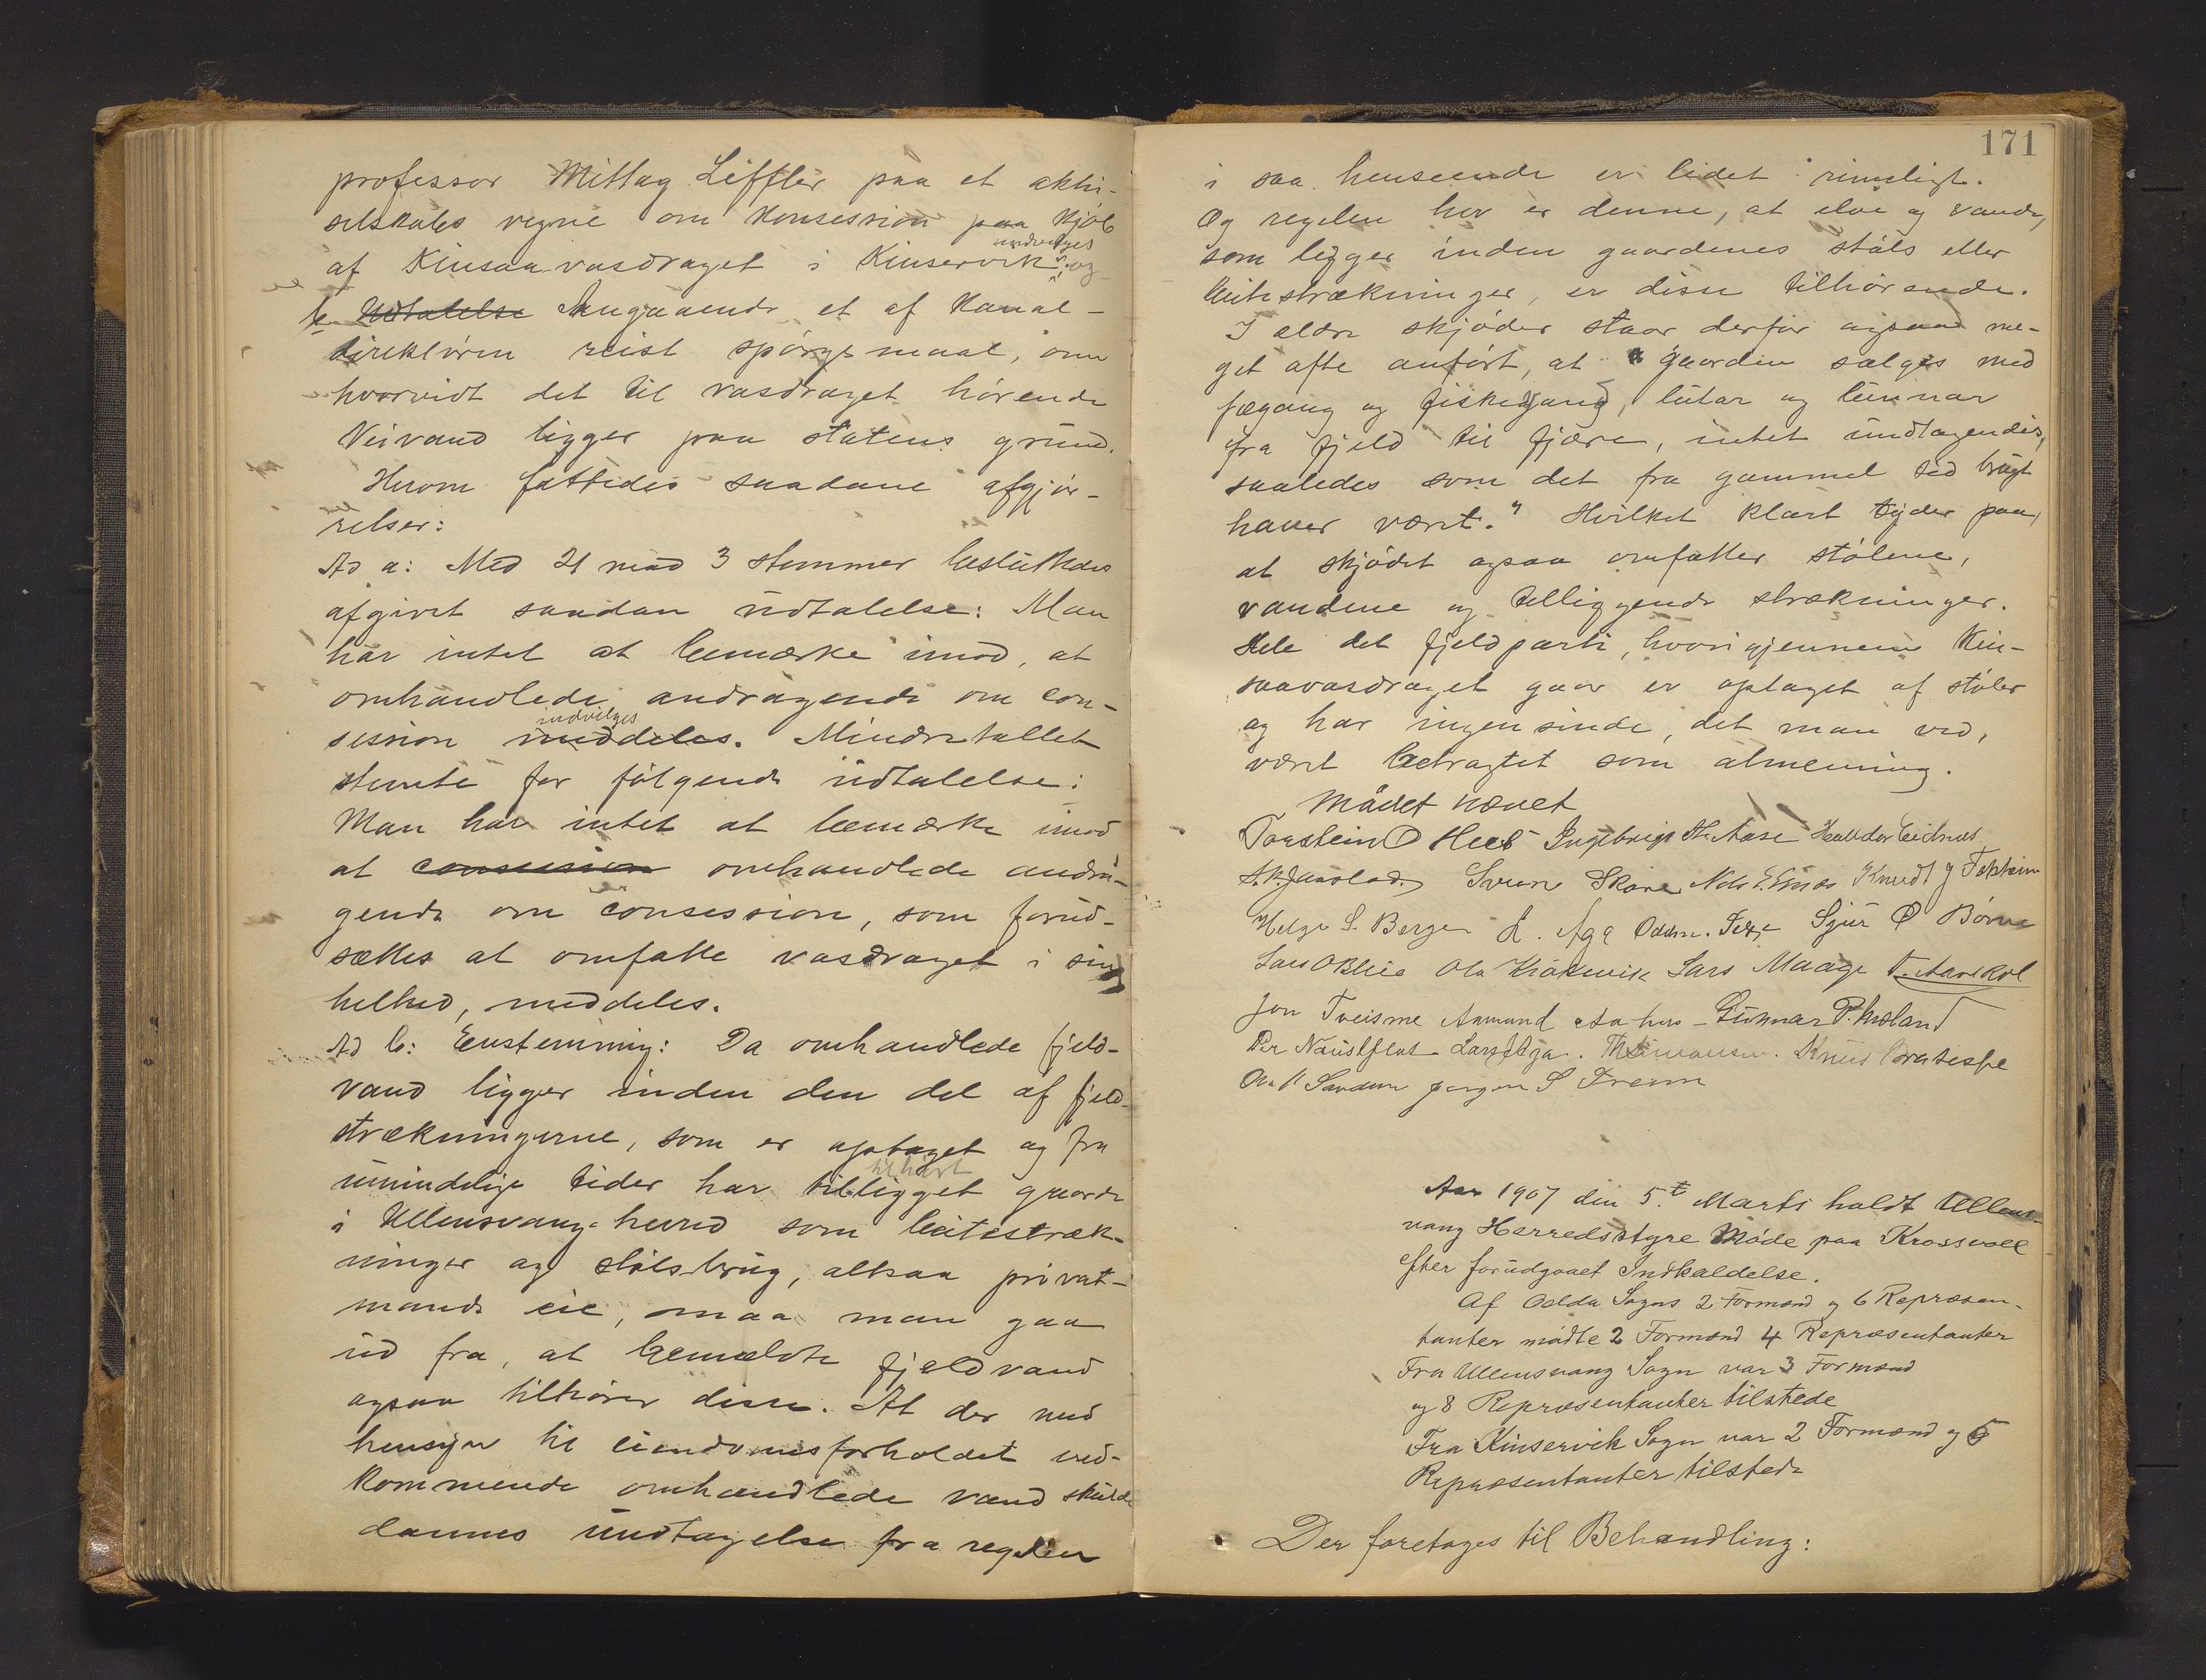 professor Mittag Leffler paa et aktie-
selskabs vegne om konsession paa kjøb
af Kinsaavasdraget i Kinservik indvilges og
b Udtalelse Angaaende et af kanal-
direktøren reist spørgsmaal, om
hvorvidt det til vasdraget hørende
Veivand ligger paa statens grund.
Herom fattedes saadane afgjø-
relser:
Ad a: Med 21 mod 3 stemmer besluttedes
afgivet saadan udtalelse: Man
har intet at bemærke imod, at
omhandlede andragende om con-
session meddeles. indvilges Mindretallet
stemte for følgende udtalelse:
Man har intet at bemærke imod
at consession omhandlede andra-
gende om consession, som forud-
sættes at omfatte vasdraget i sin
helhed, meddeles.
Ad b: Enstemmig: Da omhandlede fjeld-
vand ligger inden den del af fjeld-
strækningerne, som er optaget og fra
umindelige tider har tilligget tilhørt gaarde
i Ullensvang herred som beitestræk-
ninger og stølsbrug, altsaa privat-
mands eie, maa man gaa
ud fra, at bemeldte fjeldvand
ogsaa tilhører disse. At der med
hensyn til eiendomsforholdet ved-
kommende omhandlede vand skulde
dannes undtagelse fra regelen
171
i saa henseende er lidet rimeligt.
Og regelen her er denne, at elve og vande,
som ligger inden gaardenes støls eller
beitestrækninger, er disse tilhørende.
I eldre skjøder staar derfor ogsaa me-
get ofte anført, at "gaarden sælges med
fægang og fiskegang, lutar og lunnar
fra fjeld til fjære, intet undtagendes,
saaledes som det fra gammel tid brugt
haver været." Hvilket klart tyder paa,
at skjødet ogsaa omfatter stølene,
vandene og tilliggende strækninger.
Hele det fjeldparti, hvorigjennem Kin-
saavasdraget gaar er optaget af støler
og har ingensinde, det man ved,
været betragtet som almenning.
Mødet hævet
Torstein O Hus Ingebrigt Aase Halldor Eidnes
Svein Skare Nils Knudt J Tokheim
Helge S. Berge Aga Oddm. Sjur O Børve
Lars O Ola Kraakevik Lars Maage
Jon Tveisme Aamund Gunnar P. Meland
Per Naustflot Lars Aga. Th Simonsen. Knut Bratespe
Ola Sandven Jørgen S Freim
Aar 1907 den 5.t Marts holdt Ullens-
vang Herredsstyre Møde paa Krossvoll
efter forudgaaet Indkaldelse.
Af Odda Sogns 2 Formænd og 6 Repræsen-
tanter mødte 2 Formænd 4 Repræsentanter
Fra Ullensvang Sogn var 3 Formænd
og 8 Repræsentanter tilstede
Fra Kinservik Sogn var 2 Formænd og 5
Repræsentanter tilstede
Der foretoges til Behandling: